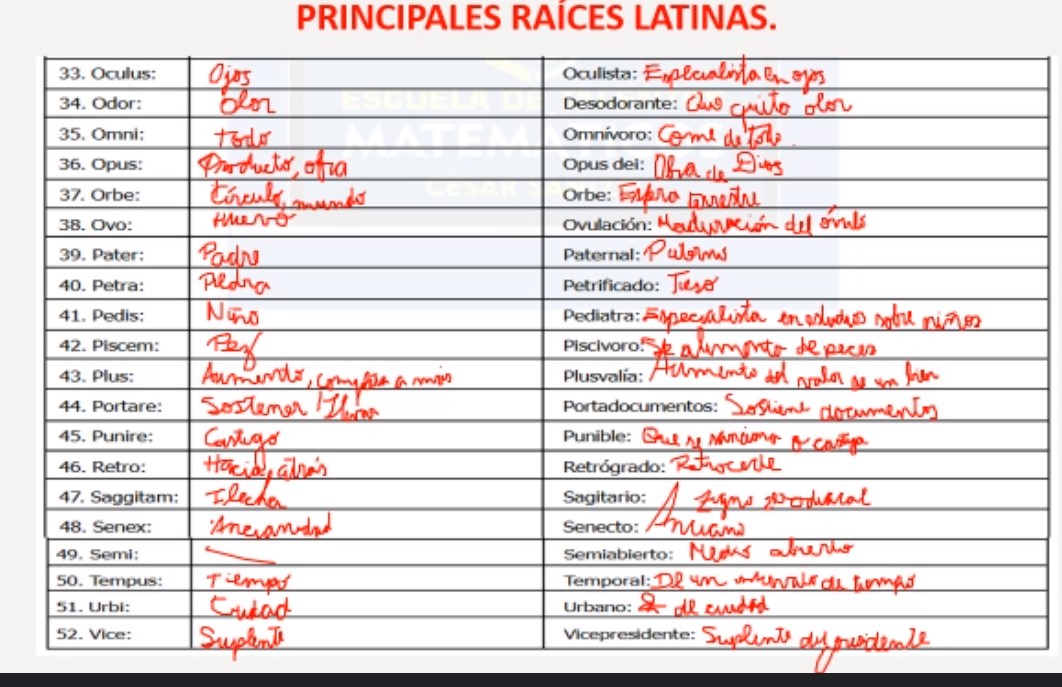 PRINCIPALES RAÍCES LATINAS.
33. Oculus: Ojos Oculista: Especialista en ojos
34. Odor: Olor Desodorante: Que quita olor
35. Omni: Todo Omnívoro: Come de todo.
36. Opus: Producto, obra Opus dei: Obra de Dios
37. Orbe: Círculo, mundo Orbe: Esfera terrestre
38. Ovo: Huevo Ovulación: Maduración del óvulo
39. Pater: Padre Paternal: Paterno
40. Petra: Piedra Petrificado: Tieso
41. Pedis: Niño Pediatra: Especialista en estudios sobre niños
42. Piscem: Pez Piscivoro: Se alimenta de peces
43. Plus: Aumento, a más Plusvalía: Aumento del valor de un bien
44. Portare: Sostener / llevar Portadocumentos: Sostiene documentos
45. Punire: Castigo Punible: Que se sanciona o castiga
46. Retro: Hacia atrás Retrógrado: Retrocede
47. Saggitam: Flecha Sagitario: signo zodiacal
48. Senex: Ancianidad Senecto: Anciano
49. Semi: Semiabierto: Medio abierto
50. Tempus: Tiempo Temporal: De un intervalo de tiempo
51. Urbi: Ciudad Urbano: de ciudad
52. Vice: Suplente Vicepresidente: Suplente del presidente